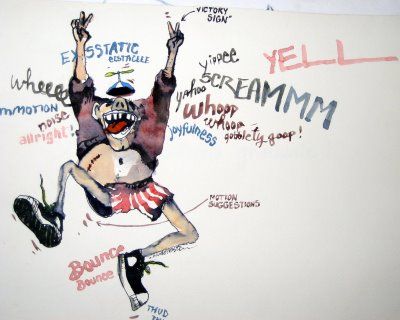 "VICTORY
SIGN"
EX-SSTATIC
yippee
YELL
wheeee
SCREAMMM
yahoo
MMOTION
whoop
noise
whoop
allright!
joyfulness
gobblety goop!
MOTION
SUGGESTIONS
Bounce
Bounce
THUD